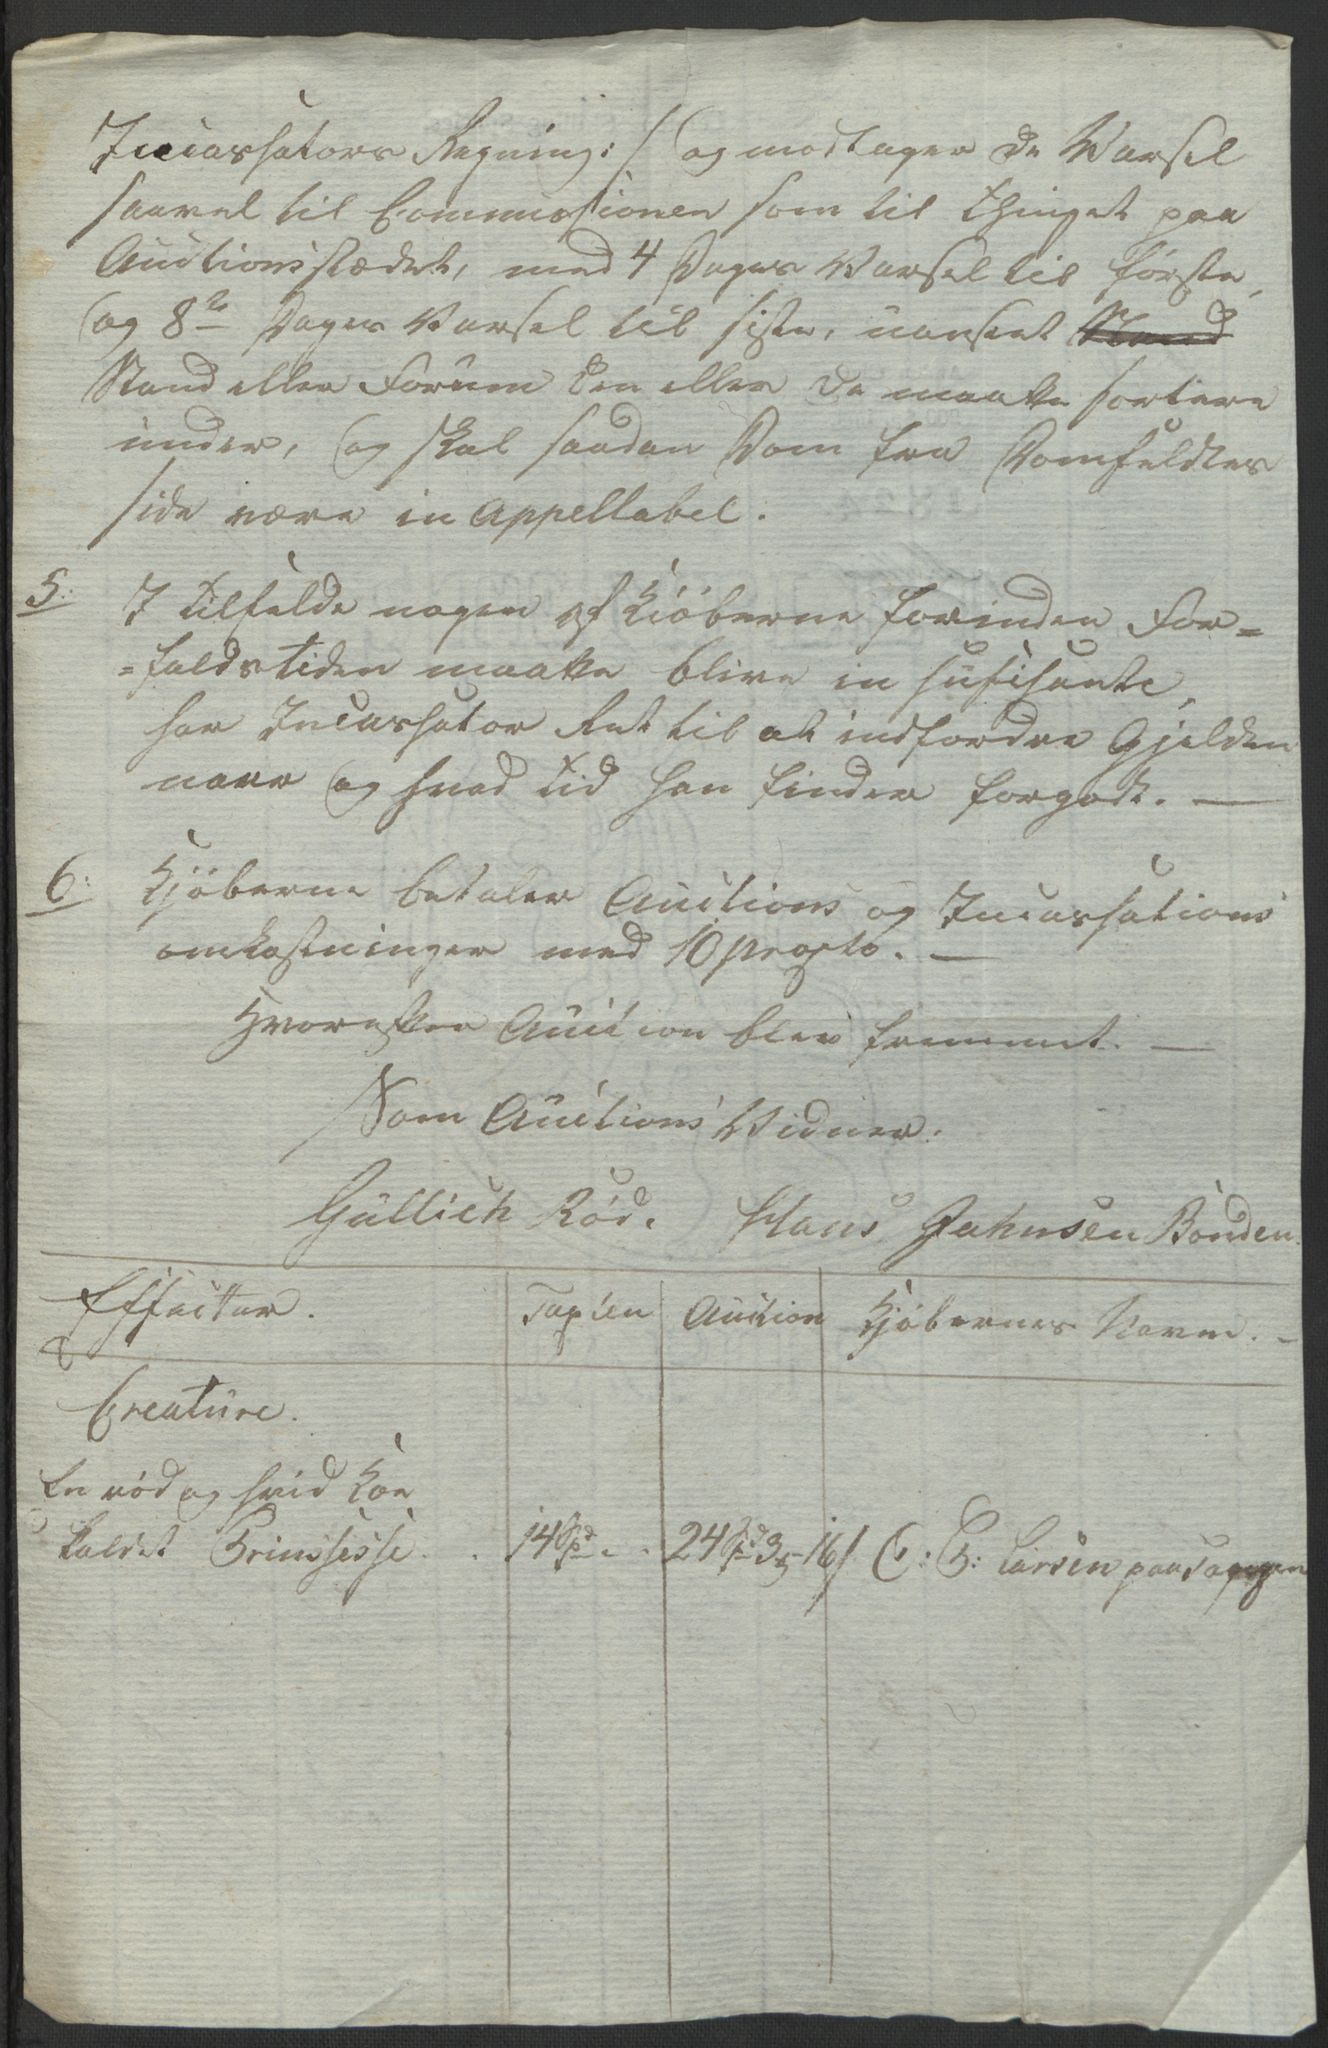 Incassators Regning :/ og modtager de Varsel
saavel til Commissionen som til Thinget paa
Auctionsstædet, med 4 Dages Varsel til første,
og 8te Dages Varsel til siste, uanseet Stand
Stand eller Forum den eller de maatte sortere
under, og skal saadan Dom fra Domfeldtes
side være in appellabel.
5: I Tilfælde nogen af Kiöberne forinden For=
=faldstiden maatte blive in sufisante,
har Incassator Ret til at indfordre Gjelden
naar og hvad Tid han finder forgodt. —
6: Kjöberne betaler Auctions og Incassations
omkostninger med 10 procto. —
Hvorefter Auction blev fremmet. —
Som Auctions Vidner.
Gullich Röd. Hans Jahnsen Bonden.
Effecter. Taxten Auction Kjöbernes Navne. -
Creature.
En röd og hvid Koe
kaldet Prinssesse . . 14 Spd - . 24 Spd 3 - 16 / C: B: Larsen paa